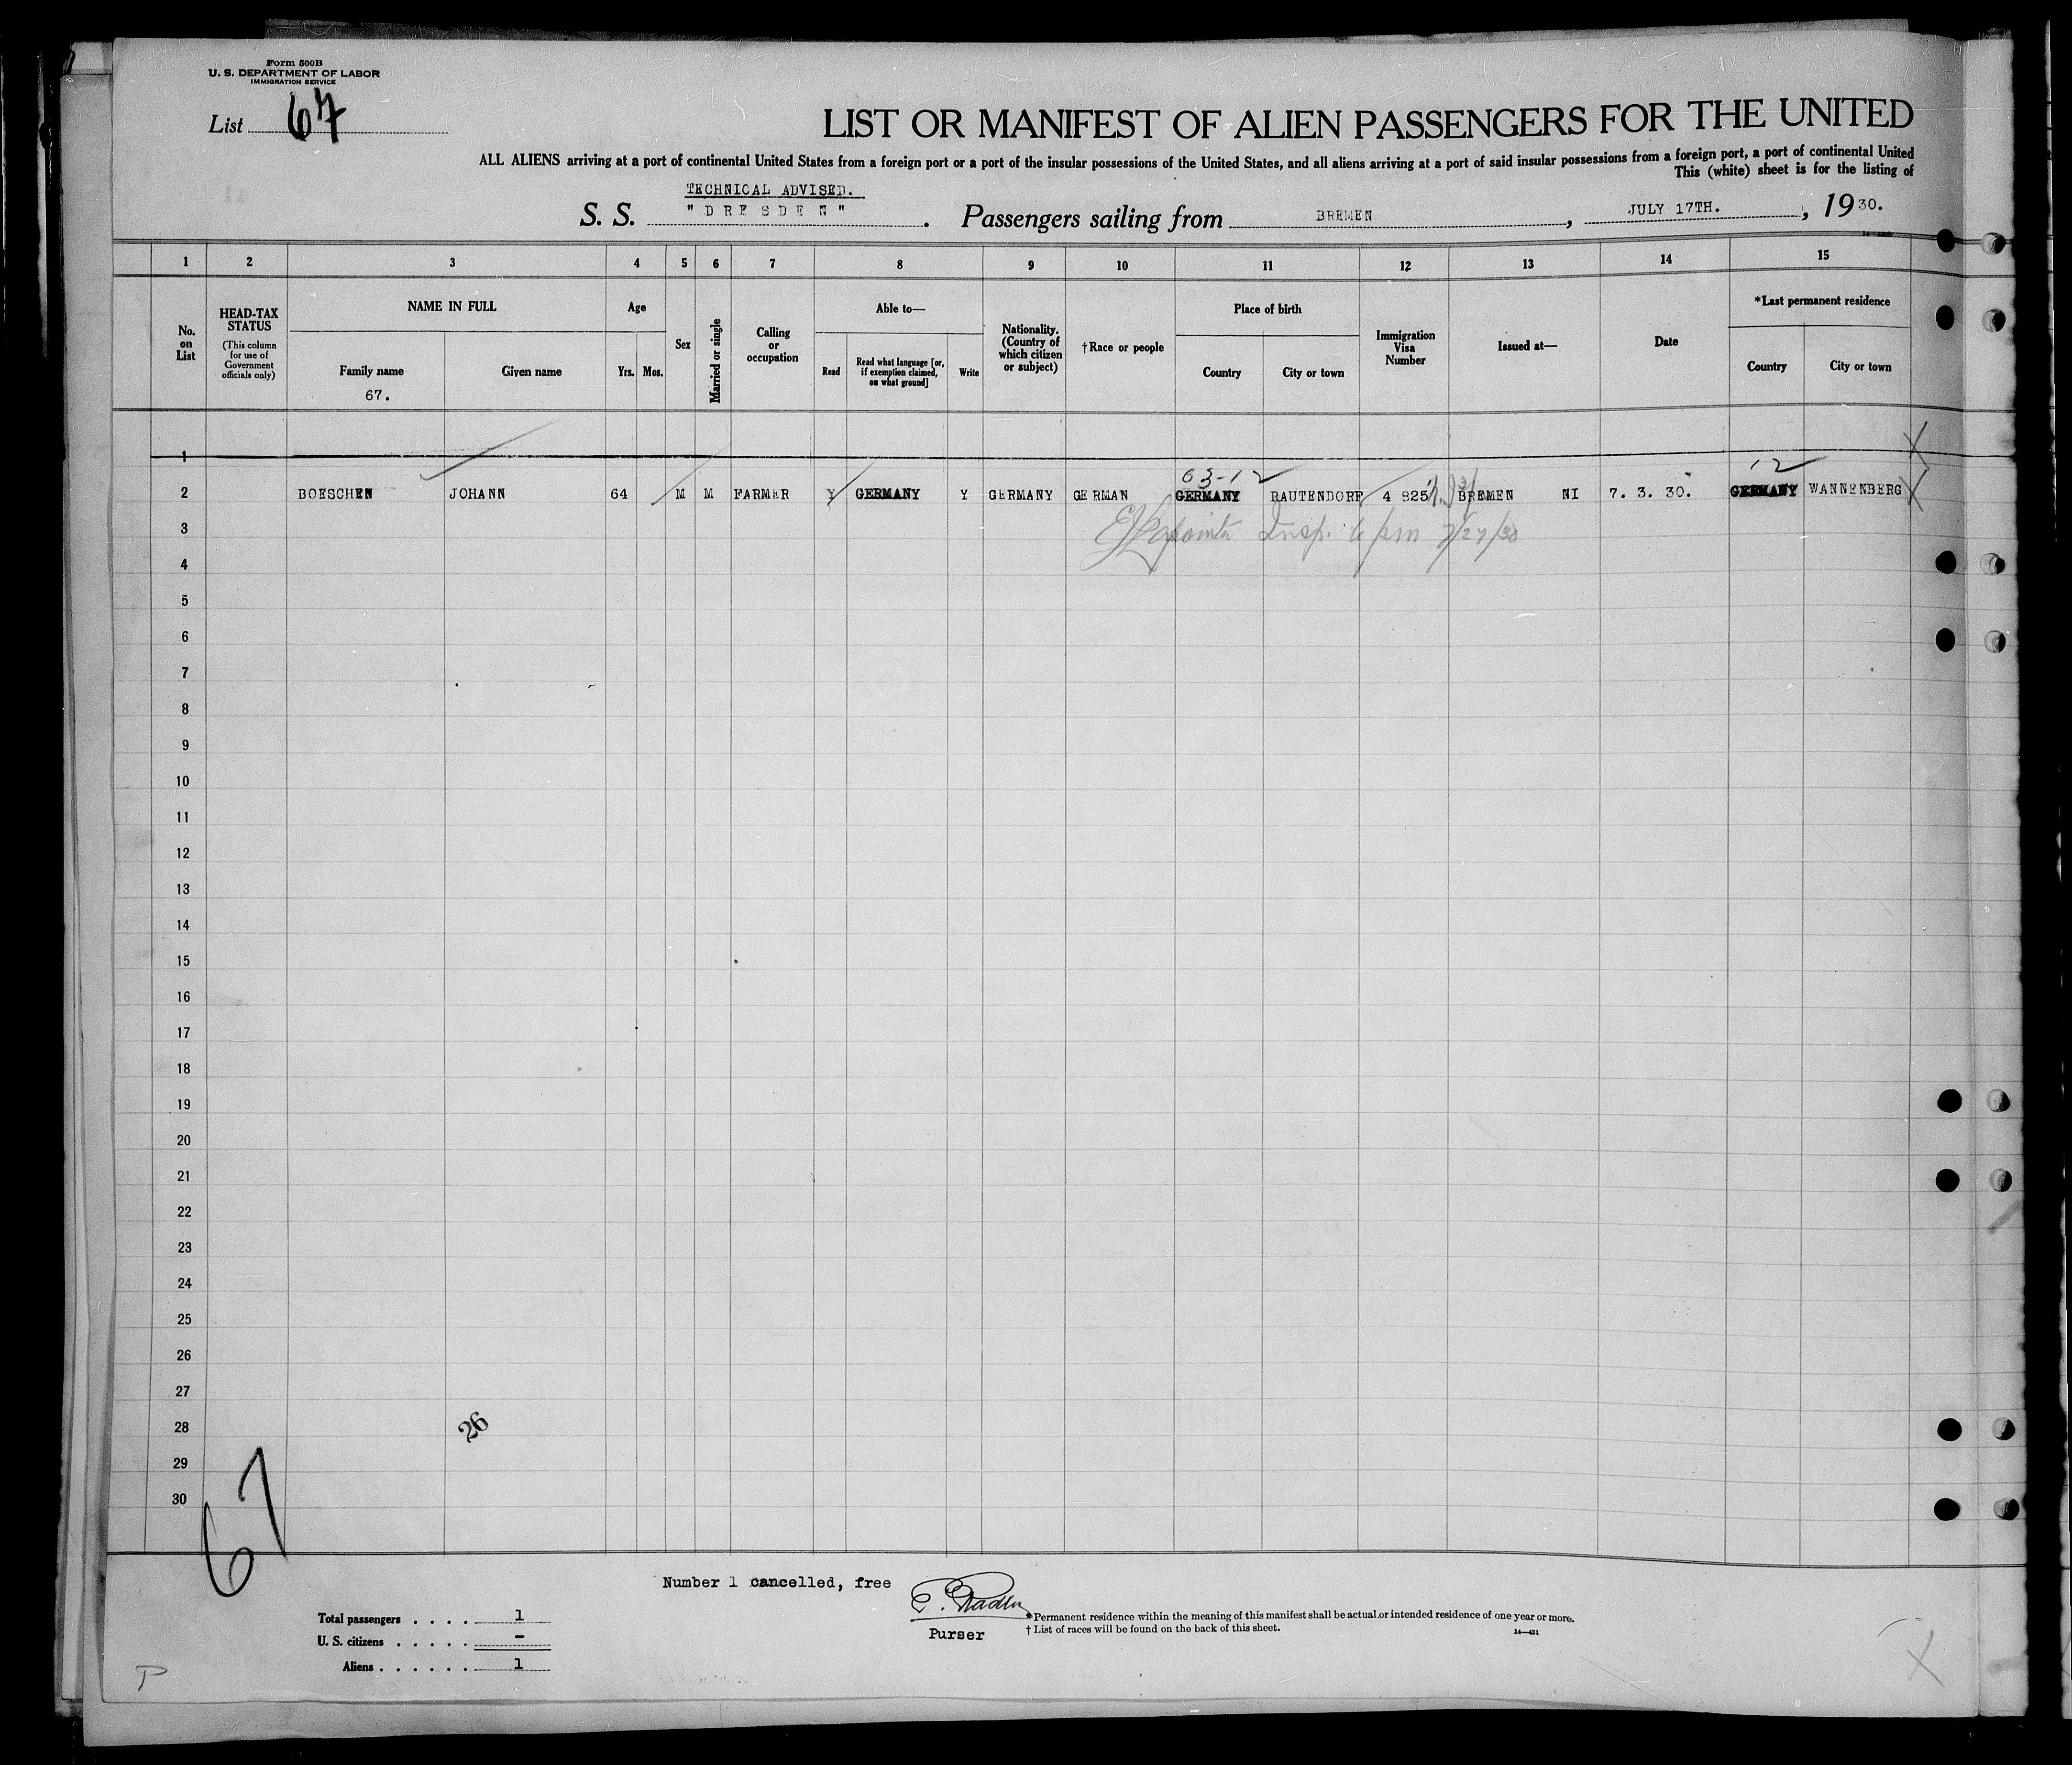 Form 500B
U. S. DEPARTMENT OF LABOR
IMMIGRATION SERVICE
List 67
LIST OR MANIFEST OF ALIEN PASSENGERS FOR THE UNITED
ALL ALIENS arriving at a port of continental United States from a foreign port or a port of the insular possessions of the United States, and all aliens arriving at a port of said insular possessions from a foreign port, a port of continental United
This (white) sheet is for the listing of
TECHNICAL ADVISED.
S. S. "DRESDEN". Passengers sailing from BREMEN, JULY 17TH., 1930.
1 2 3 4 5 6 7 8 9 10 11 12 13 14 15
No. on List
HEAD-TAX STATUS
(This column for use of Government officials only)
NAME IN FULL
Family name
67.
Given name
Age
Yrs. Mos.
Sex
Married or single
Calling or occupation
Able to—
Read
Read what language [or, if exemption claimed, on what ground]
Write
Nationality. (Country of which citizen or subject)
†Race or people
Place of birth
Country
City or town
Immigration Visa Number
Issued at—
Date
*Last permanent residence
Country
City or town
1
63-12
12
2 BOESCHEN JOHANN 64 M M FARMER Y GERMANY Y GERMANY GERMAN GERMANY RAUTENDORF 4 825 BREMEN NI 7. 3. 30. GERMANY WANNENBERG
3 Insp. 6 pm 7/27/30
4
5
6
7
8
9
10
11
12
13
14
15
16
17
18
19
20
21
22
23
24
25
26
27
28 26
29
30
67
Number 1 cancelled, free
Total passengers . . . . 1
U. S. citizens . . . . . -
Aliens . . . . . . 1
Purser
*Permanent residence within the meaning of this manifest shall be actual or intended residence of one year or more.
† List of races will be found on the back of this sheet.
14—431
P
X